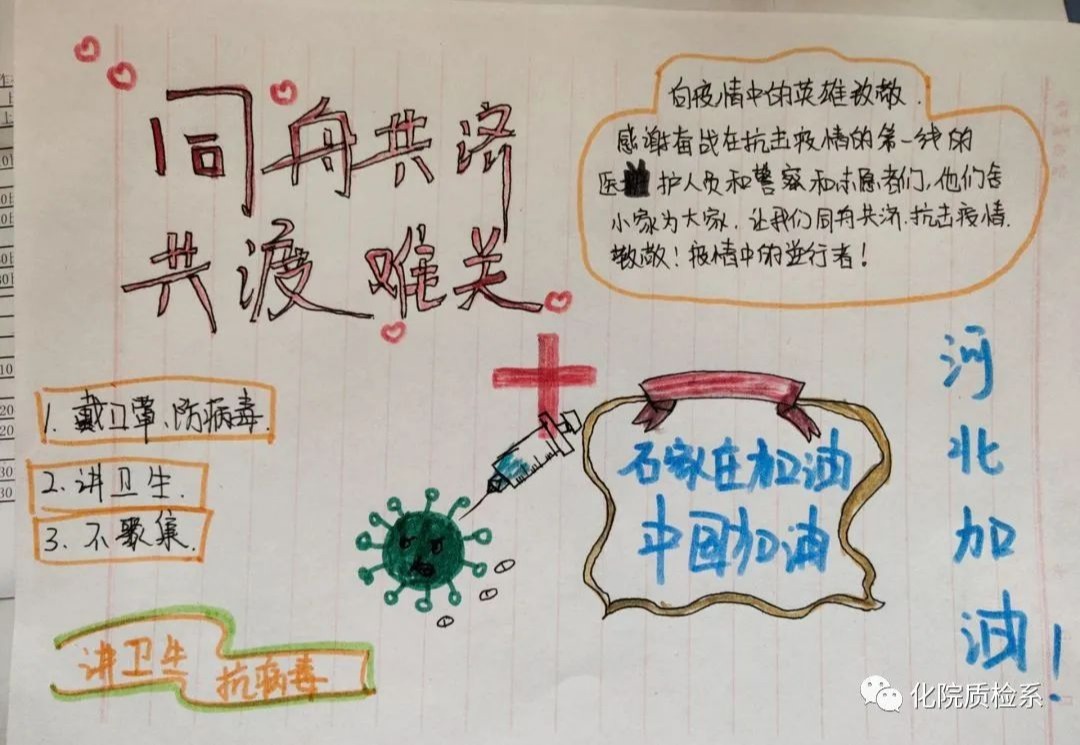 同舟共济
共渡难关
向疫情中的英雄致敬.
感谢奋战在抗击疫情的第一线的
医护人员和警察和志愿者们,他们舍
小家为大家.让我们同舟共济.抗击疫情.
致敬!疫情中的逆行者!
1.戴口罩、防病毒.
2.讲卫生.
3.不聚集.
石家庄加油
中国加油
河北加油!
讲卫生 抗病毒
化院质检系